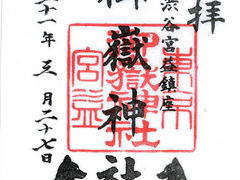 拝
渋谷宮益鎮座
御嶽神社
二十一年三月二十七日
東京
御嶽神社
宮益